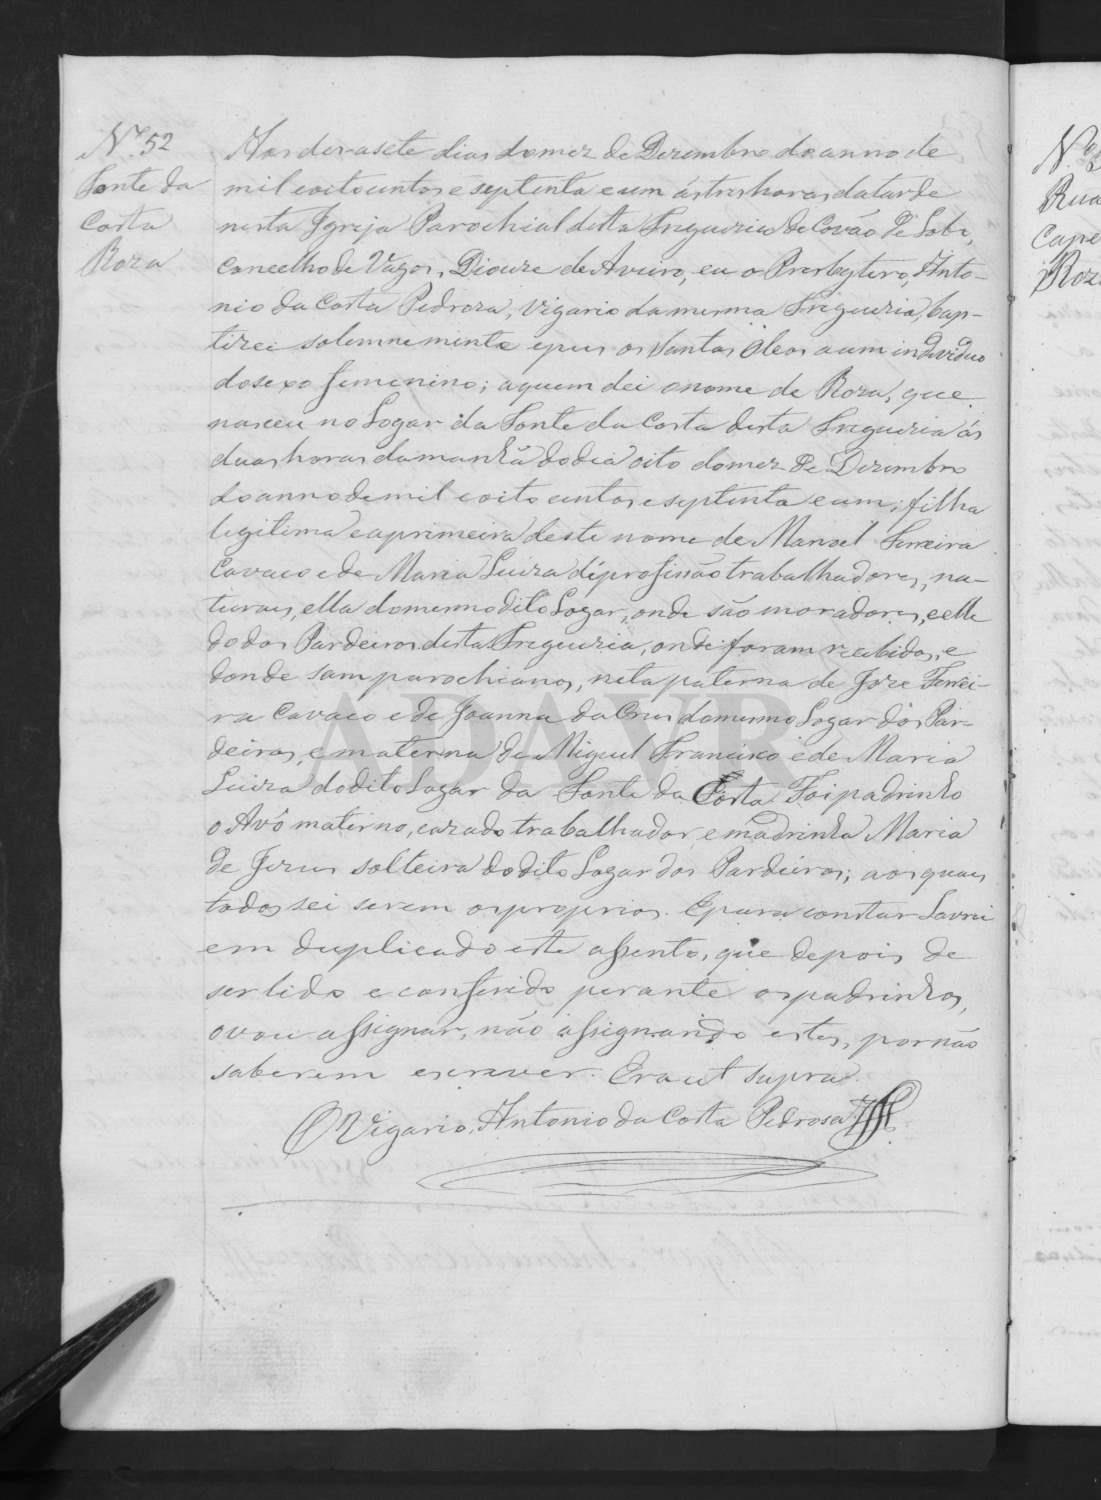 Nº 52
Fonte da
Costa
Roza
Aos dez asete dias do mez de Dezembro do anno de
mil e oito centos e septenta e um ás tres horas da tarde
nesta Igreja Parochial desta Freguezia de Covão de Lobo,
Concelho de Vagos, Diocese de Aveiro, eu o Presbytero, Anto-
nio da Costa Pedroza, Vigario da mesma Freguezia, bap-
tizei solemnemente e puz os Santos Oleos a um individuo
do sexo femenino; a quem dei o nome de Roza, que
nasceu no Logar da Fonte da Costa desta Freguezia ás
duas horas da manhã do dia oito do mez de Dezembro
do anno de mil e oito centos e septenta e um; filha
legitima e a primeira deste nome de Manoel Ferreira
Cavaco e de Maria Luiza de profissão trabalhadores, na-
turaes, ella do mesmo dito Logar, onde são moradores, e elle
do dos Pardeiros desta Freguezia, onde foram recebidos, e
donde sam parochianos, neta paterna de Joze Ferrei-
ra Cavaco e de Joanna da Cruz do mesmo Logar dos Par-
deiros, e materna de Miguel Francisco e de Maria
Luiza do dito Logar da Fonte da Costa. Foi padrinho
o Avô materno, cazado trabalhador, e madrinha Maria
de Jezus solteira do dito Logar dos Pardeiros; aos quaes
todos sei serem os proprios. E para constar Lavrei
em duplicado este assento, que depois de
ser lido e conferido perante os padrinhos,
o vou assignar, não assignando estes, por não
saberem escrever. Era ut supra.
O Vigario, Antonio da Costa Pedrosa
ADAVR
Nº 5
Rua
Cape
Roz